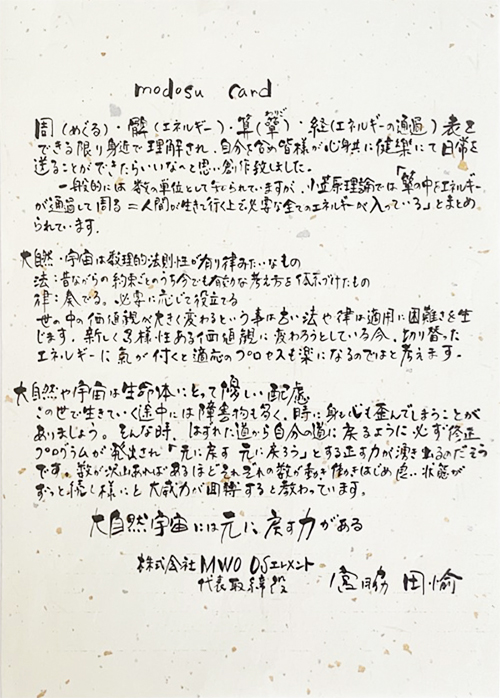 modosu card
周(めぐる)・髀(エネルギー)・算(簞)・経(エネルギーの通過)表を
できる限り身近で理解され、自分を含め皆様が心身共に健楽にて日常を
送ることができたらいいなと思い創作致しました。
一般的には数の単位として知られていますが、小笠原理論では「簞の中をエネルギー
が通過して周る=人間が生きて行く上で必要な全てのエネルギーが入っている」とまとめ
られています。
大自然・宇宙は数理的法則性が有り律みたいなもの
法:昔ながらの約束ごとのうち今でも有効な考え方を体系づけたもの
律:奏でる。必要に応じて役立てる
世の中の価値観が大きく変わるという事は古い法や律は適用に困難さを生
じます。新しく多様性ある価値観に変わろうとしている今、切り替った
エネルギーに氣が付くと適応のプロセスも楽になるのではと考えます。
大自然や宇宙は生命体にとって優しい配慮
この世で生きていく途中には障害物も多く、時に身も心も歪んでしまうことが
ありましょう。そんな時、はずれた道から自分の道に戻るように必ず修正
プログラムが発出され「元に戻す 元に戻ろう」とする正す力が湧き出るのだそう
です。数が沢山あればあるほどそれぞれの数が動き働きはじめ良い状態が
ずっと続く様にと大威力が回転すると教わっています。
大自然宇宙には元に戻す力がある
株式会社MWO OSエレメント
代表取締役 宮脇 田愉